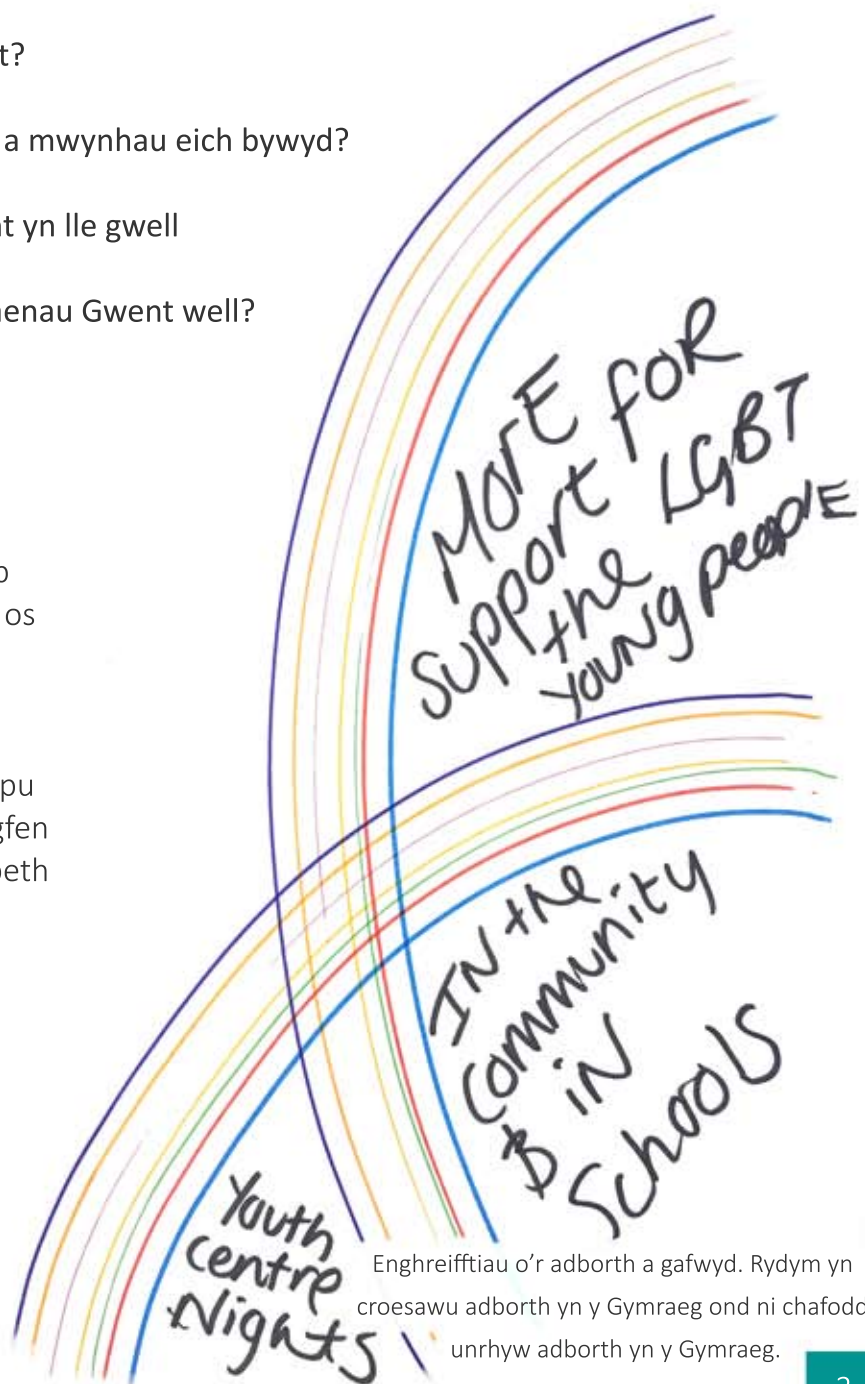 t?
a mwynhau eich bywyd?
t yn lle gwell
enau Gwent well?
os
pu
gfen
eth
MOrE FOR
SUPPOrt LGBT
the
YOUNg peoplE
IN the
Community
& iN
SchoolS
Youth
centre
Nights
Enghreifftiau o'r adborth a gafwyd. Rydym yn
croesawu adborth yn y Gymraeg ond ni chafodd
unrhyw adborth yn y Gymraeg.